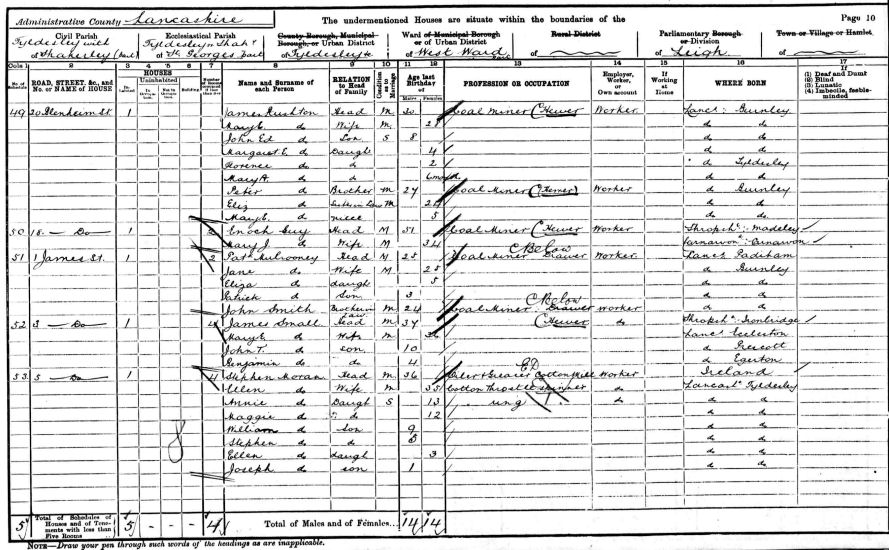 Administrative County Lancashire The undermentioned Houses are situate within the boundaries of the Page 10
Civil Parish Ecclesiastical Parish County Borough, Municipal Borough, or Urban District Ward of Municipal Borough or of Urban District Rural District Parliamentary Borough or Division Town or Village or Hamlet
Tyldesley with of Shakerley (part) Tyldesley of St Georges part of Tyldesley of West Ward part of of Leigh of
Cols 1 2 3 4 5 6 7 8 9 10 11 12 13 14 15 16 17
No. of Schedule ROAD, STREET, &c., and No. or NAME of HOUSE HOUSES Uninhabited Building Name and Surname of each Person RELATION to Head of Family Condition as to Marriage Age last Birthday of Males Females PROFESSION OR OCCUPATION Employer, Worker, or Own account If Working at Home WHERE BORN If (1) Deaf and Dumb (2) Blind (3) Lunatic (4) Imbecile, feeble-minded
49 20 Blenheim St 1 James Rushton Head M 30 Coal Miner (Hewer Worker Lancs: Burnley
Mary E. do Wife M 29 do do
John Ed do Son S 8 do do
Margaret E. do Daught 4 do do
Florence do do 2 do Tyldesley
Mary A. do do 6 mos do do
Peter do Brother M 27 Coal Miner (Hewer) Worker do Burnley
Eliz do Sister in Law M 24 do do
Mary E. do niece 5 do do
50 18 — Do — 1 Enoch Guy Head M 51 Coal Miner (Hewer Worker Shropsh: Madeley
Mary J. do Wife M 34 Carnarvon
51 1 James St. 1 2 Patk Mulrooney Head M 25 Coal Miner Drawer (Below Worker Lancs Padiham
Jane do Wife M 25 do Burnley
Eliza do daught 5 do do
Patrick do Son 3 do do
John Smith Brother in Law M 24 Coal Miner Drawer (Below Worker do do
52 3 — Do — 1 4 James Small Head M 37 (Hewer do Shropsh: Ironbridge
Mary E. do Wife M 36 Lancs Eccleston
John T. do son 10 do Prescott
Benjamin do do 4 do Egerton
53 5 — Do — 1 4 Stephen Moran Head M 36 Oiler & Greaser Cotton Mill Worker Ireland
Ellen do Wife M 35 Cotton Throstle spinner do Lancash Tyldesley
Annie do Daught S 13 do do do
Maggie do do 12 do do
William do Son 9 do do
Stephen do do 5 do do
Ellen do daugh 3 do do
Joseph do son 1 do do
5 Total of Schedules of Houses and of Tenements with less than Five Rooms 5 - - - 4 Total of Males and of Females... 14 14
NOTE—Draw your pen through such words of the headings as are inapplicable.